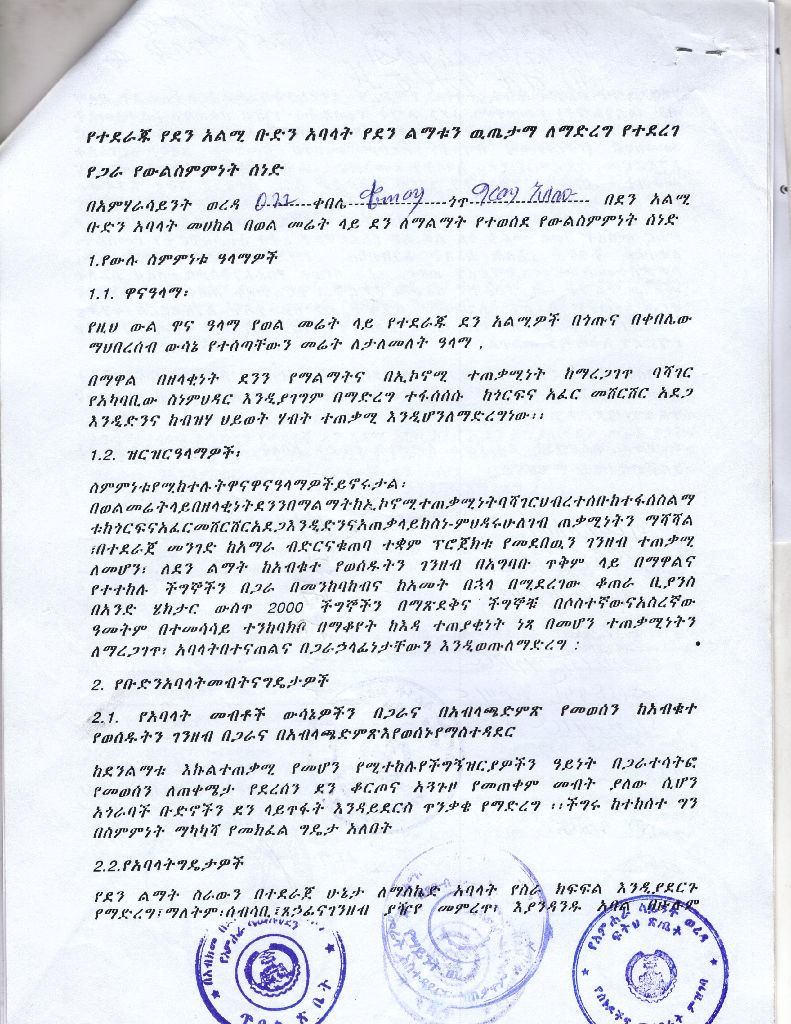 የተደራጁ የደን አልሚ ቡድን አባላት የደን ልማቱን ዉጤታማ ለማድረግ የተደረገ
የጋራ የውልስምምነት ሰነድ
በአምሃራሳይንት ወረዳ 022 ቀበሌ ጎጥ በደን አልሚ
ቡድን አባላት መሀከል በወል መሬት ላይ ደን ለማልማት የተወሰደ የውልስምምነት ሰነድ
1.የውሉ ስምምነቱ ዓላማዎች
1.1. ዋናዓላማ፡
የዚህ ውል ዋና ዓላማ የወል መሬት ላይ የተደራጁ ደን አልሚዎች በጎጡና በቀበሌው
ማህበረሰብ ውሳኔ የተሰጣቸውን መሬት ለታለመለት ዓላማ ,
በማዋል በዘላቂነት ደንን የማልማትና በኢኮኖሚ ተጠቃሚነት ከማረጋገጥ ባሻገር
የአካባቢው ስነምህዳር እንዲያገግም በማድረግ ተፋሰሱ ከጎርፍና አፈር መሸርሸር አደጋ
እንዲድንና ከብዝሃ ህይወት ሃብት ተጠቃሚ እንዲሆንለማድረግነው፡፡
1.2. ዝርዝርዓላማዎች፡
ስምምነቱየሚከተሉትዋናዋናዓላማዎችይኖሩታል፡
በወልመሬትላይበዘላቂነትደንንበማልማትከኢኮኖሚተጠቃሚነትባሻገርህብረተሰቡከተፋሰስልማ
ቱከጎርፍናአፈርመሸርሸርአደጋእንዲድንናአጠቃላይከስነ-ምህዳሩሁለገብ ጠቃሚነትን ማሻሻል
፣በተደራጀ መንገድ ከአማራ ብድርናቁጠባ ተቋም ፕሮጀክቱ የመደበዉን ገንዘብ ተጠቃሚ
ለመሆን፣ ለደን ልማት ከአብቁተ የወሰዱትን ገንዘብ በአግባቡ ጥቅም ላይ በማዋልና
የተተከሉ ችግኞችን በጋራ በመንከባከብና ከአመት በኋላ በሚደረገው ቆጠራ ቢያንስ
በአንድ ሄክታር ውስጥ 2000 ችግኞችን በማጽደቅና ችግኞቹ በሶስተኛውናአስረኛው
ዓመትም በተመሳሳይ ተንከባክቦ በማቆየት ከእዳ ተጠያቂነት ነጻ በመሆን ተጠቃሚነትን
ለማረጋገጥ፣ አባላትበተናጠልና በጋራኃላፊነታቸውን እንዲወጡለማድረግ :
2. የቡድንአባላትመብትናግዴታዎች
2.1. የአባላት መብቶች ውሳኔዎችን በጋራና በአብላጫድምጽ የመወሰን ከአብቁተ
የወሰዱትን ገንዘብ በጋራና በአብላጫድምጽእየወሰኑየማስተዳደር
ከደንልማቱ እኩልተጠቃሚ የመሆን የሚተከሉየችግኝዝርያዎችን ዓይነት በጋራተሳትፎ
የመወሰን ለጠቀሜታ የደረሰን ደን ቆርጦና አጓጉዞ የመጠቀም መብት ያለው ሲሆን
አጎራባች ቡድኖችን ደን ላይጥፋት እንዳይደርስ ጥንቃቄ የማድረግ ፡፡ችግሩ ከተከሰተ ግን
በስምምነት ማካካሻ የመክፈል ግዴታ አለበት
2.2.የአባላትግዴታዎች
የደን ልማት ስራውን በተደራጀ ሁኔታ ለማስኬድ አባላት የስራ ክፍፍል እንዲያደርጉ
የማድረግ፣ማለትም፡ሰብሳቢ፣ጸኃፊናገንዘብ ያዥየ መምረጥ፣ እያንዳንዱ አባል
የአምሐራ ሳይንት ወረዳ
ፍትህ ጽ/ቤት